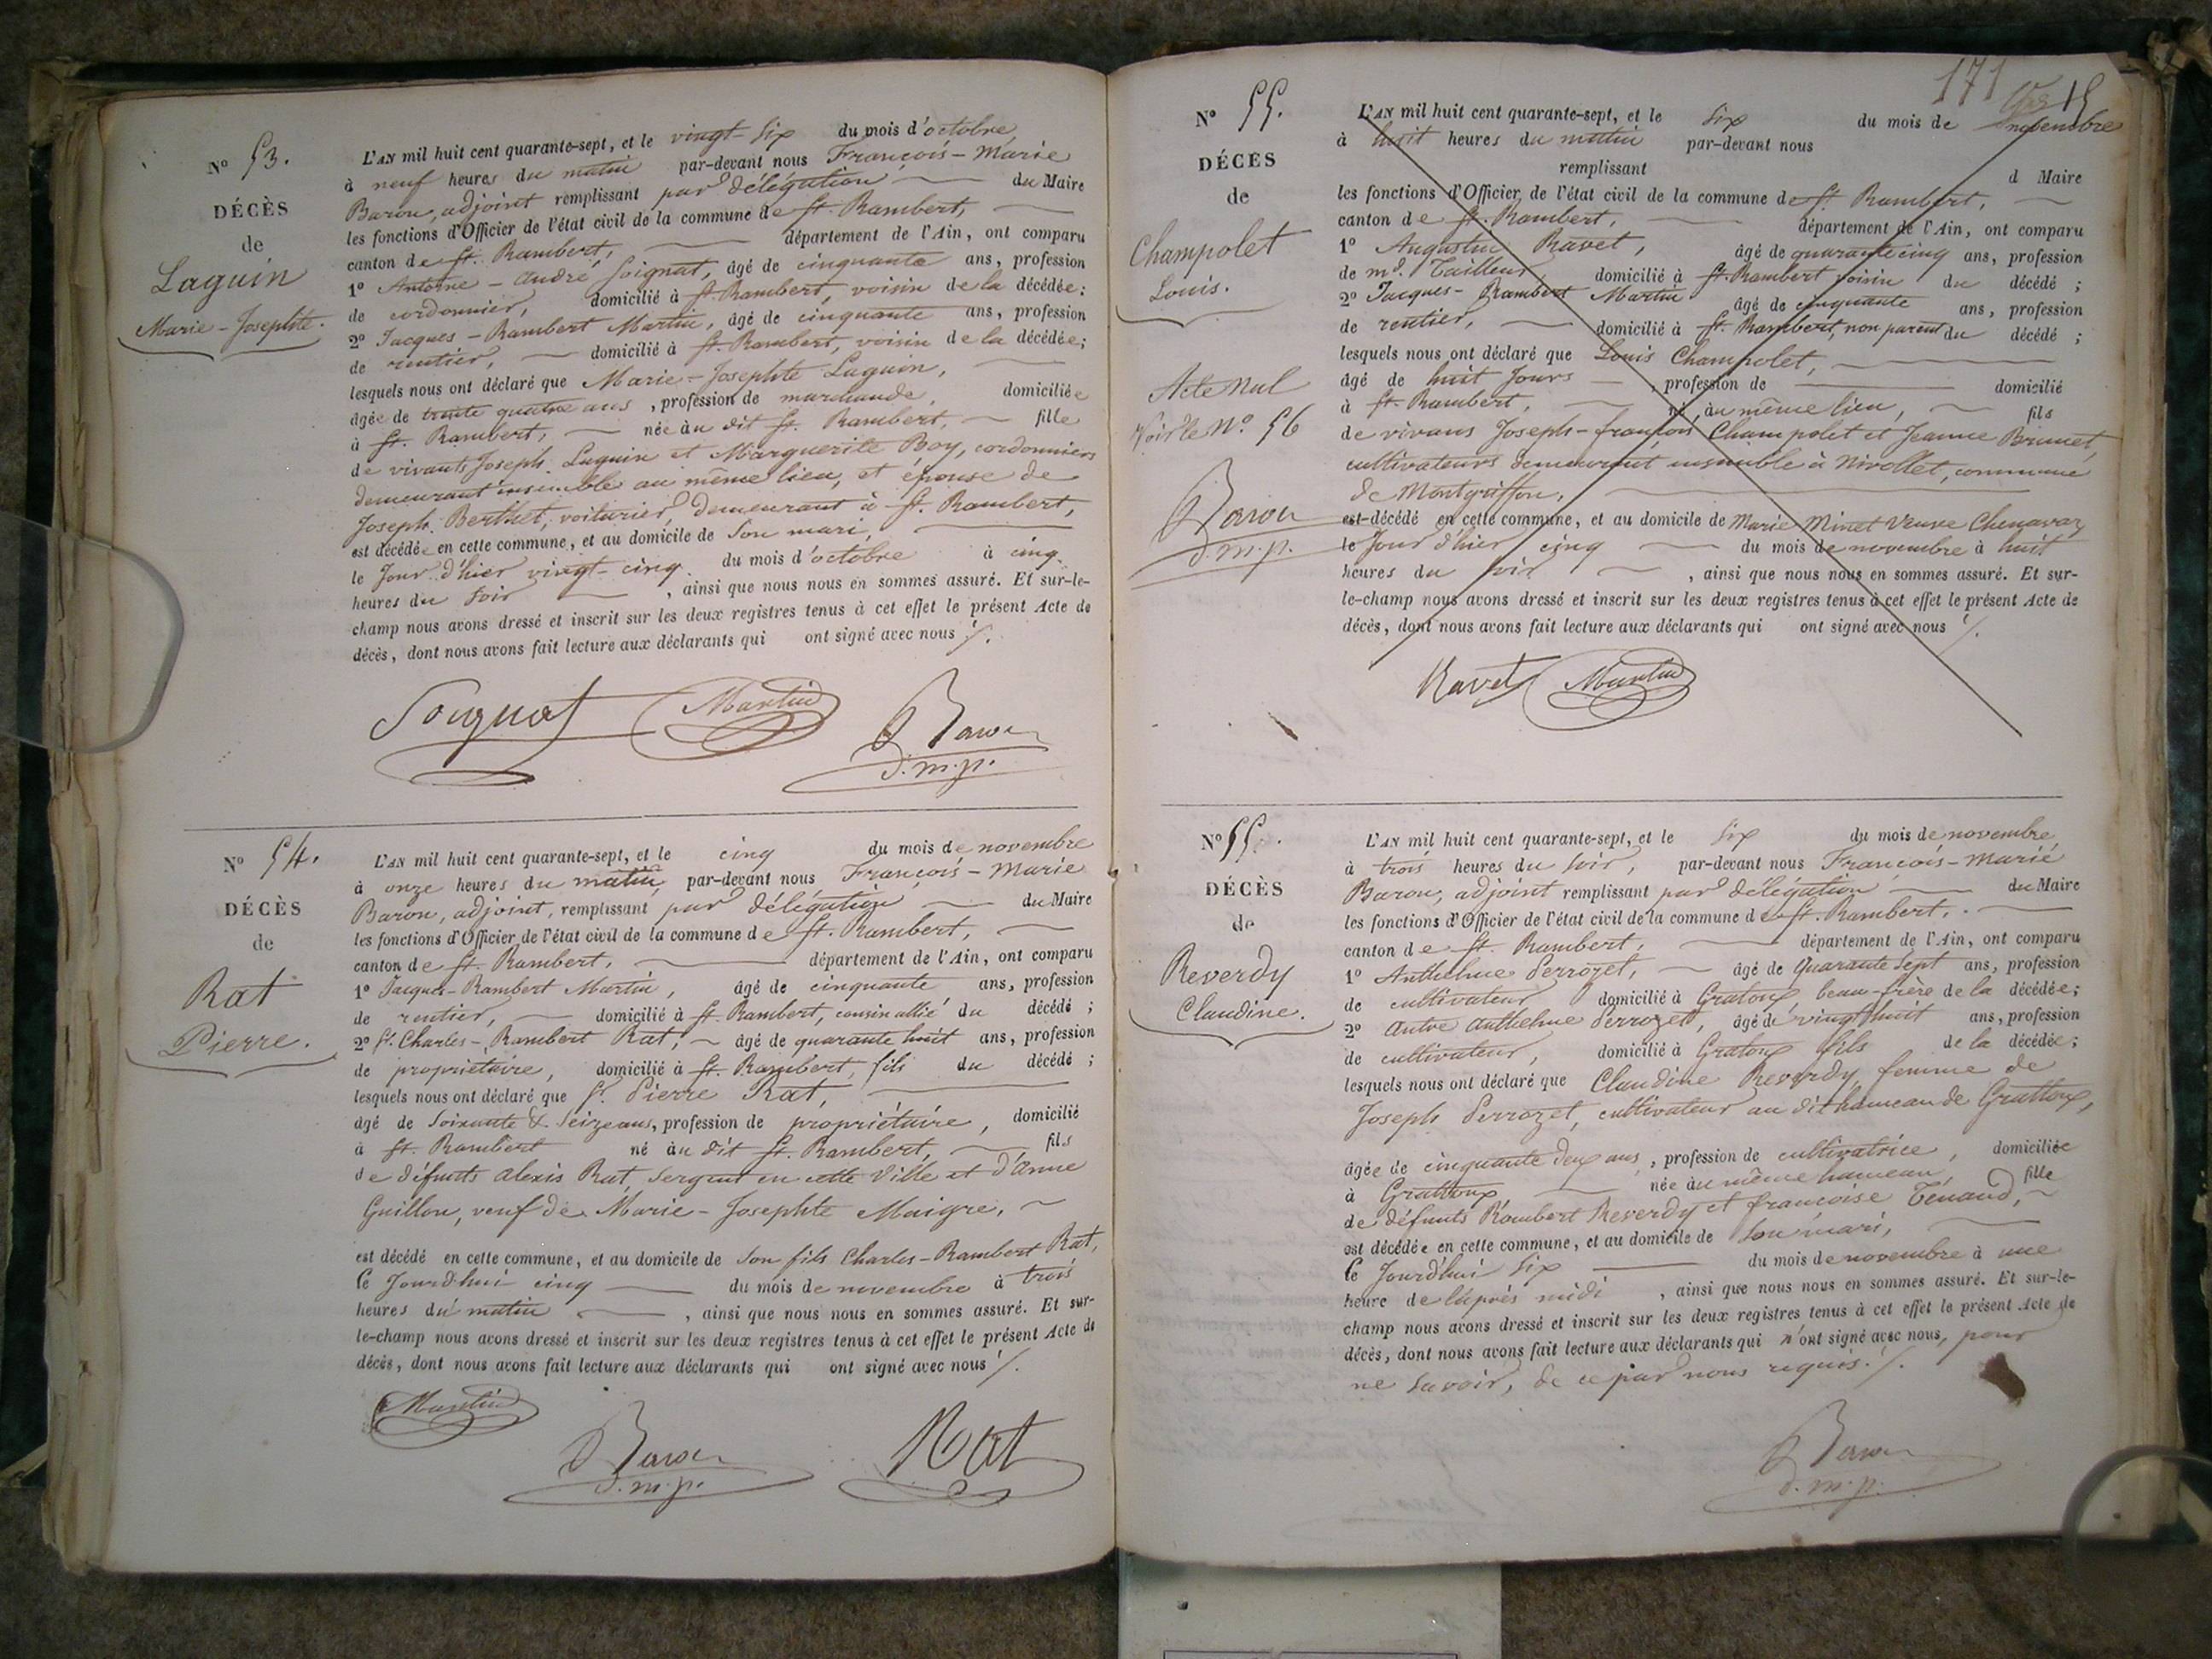 N° 53.
DÉCÈS
de
Laguin
Marie-Josephte.
L'AN mil huit cent quarante-sept, et le vingt-six du mois d'octobre
à neuf heures du matin par-devant nous François-Marie
Baron, adjoint remplissant par délégation du Maire
les fonctions d'Officier de l'état civil de la commune de St. Rambert,
canton de St. Rambert, département de l'Ain, ont comparu
1° Antoine-André Soignat, âgé de cinquante ans, profession
de cordonnier, domicilié à St. Rambert, voisin de la décédée;
2° Jacques-Rambert Martin, âgé de cinquante ans, profession
de rentier, domicilié à St. Rambert, voisin de la décédée;
lesquels nous ont déclaré que Marie-Josephte Laguin,
âgée de trente quatre ans, profession de marchande, domiciliée
à St. Rambert, née au dit St. Rambert, fille
de vivants Joseph Laguin et Marguerite Boy, cordonniers
demeurant ensemble au même lieu, et épouse de
Joseph Berthet, voiturier, demeurant à St. Rambert,
est décédée en cette commune, et au domicile de Son mari,
le Jour d'hier vingt-cinq du mois d'octobre à cinq
heures du soir, ainsi que nous nous en sommes assuré. Et sur-le-
champ nous avons dressé et inscrit sur les deux registres tenus à cet effet le présent Acte de
décès, dont nous avons fait lecture aux déclarants qui ont signé avec nous ./.
Soignat Martin Baron
d.m.p.
N° 54.
DÉCÈS
de
Rat
Pierre.
L'AN mil huit cent quarante-sept, et le cinq du mois de novembre
à onze heures du matin par-devant nous François-Marie
Baron, adjoint, remplissant par délégation du Maire
les fonctions d'Officier de l'état civil de la commune de St. Rambert,
canton de St. Rambert, département de l'Ain, ont comparu
1° Jacques-Rambert Martin, âgé de cinquante ans, profession
de rentier, domicilié à St. Rambert, cousin allié du décédé;
2° Sr. Charles-Rambert Rat, âgé de quarante huit ans, profession
de propriétaire, domicilié à St. Rambert, fils du décédé;
lesquels nous ont déclaré que Sr. Pierre Rat,
âgé de Soixante & Seize ans, profession de propriétaire, domicilié
à St. Rambert né au dit St. Rambert, fils
de défunts Alexis Rat, Sergent en cette Ville et d'Anne
Guillon, veuf de Marie-Josephte Maigre,
est décédé en cette commune, et au domicile de Son fils Charles-Rambert Rat,
le Jourd'hui cinq du mois de novembre à trois
heures du matin, ainsi que nous nous en sommes assuré. Et sur-
le-champ nous avons dressé et inscrit sur les deux registres tenus à cet effet le présent Acte de
décès, dont nous avons fait lecture aux déclarants qui ont signé avec nous ./.
Martin
Baron Rat
d.m.p.
171
15
N° 55.
DÉCÈS
de
Champolet
Louis.
Acte Nul
Voir le N°. 56
Baron
d.m.p.
L'AN mil huit cent quarante-sept, et le six du mois de novembre
à huit heures du matin par-devant nous
remplissant d Maire
les fonctions d'Officier de l'état civil de la commune de St. Rambert,
canton de St. Rambert, département de l'Ain, ont comparu
1° Augustin Ravet, âgé de quarante cinq ans, profession
de md. Tailleur, domicilié à St. Rambert voisin du décédé;
2° Jacques-Rambert Martin âgé de cinquante ans, profession
de rentier, domicilié à St. Rambert, non parent du décédé;
lesquels nous ont déclaré que Louis Champolet,
âgé de huit Jours, profession de domicilié
à St. Rambert, né au même lieu, fils
de vivans Joseph-françois Champolet et Jeanne Brunet,
cultivateurs demeurant ensemble à Nivollet, commune
de Montgriffon,
est décédé en cette commune, et au domicile de Marie Minet Veuve Chenavaz
le Jour d'hier cinq du mois de novembre à huit
heures du soir, ainsi que nous nous en sommes assuré. Et sur-
le-champ nous avons dressé et inscrit sur les deux registres tenus à cet effet le présent Acte de
décès, dont nous avons fait lecture aux déclarants qui ont signé avec nous ./.
Ravet Martin
N° 55.
DÉCÈS
de
Reverdy
Claudine.
L'AN mil huit cent quarante-sept, et le six du mois de novembre
à trois heures du soir, par-devant nous François-Marie
Baron, adjoint remplissant par délégation du Maire
les fonctions d'Officier de l'état civil de la commune de St. Rambert,
canton de St. Rambert, département de l'Ain, ont comparu
1° Anthelme Perrozet, âgé de Quarante Sept ans, profession
de cultivateur domicilié à Gratoux, beau-frère de la décédée;
2° Autre Anthelme Perrozet, âgé de vingt huit ans, profession
de cultivateur, domicilié à Gratoux fils de la décédée;
lesquels nous ont déclaré que Claudine Reverdy, femme de
Joseph Perrozet, cultivateur au dit hameau de Grattoux,
âgée de cinquante deux ans, profession de cultivatrice, domiciliée
à Grattoux, née au même hameau, fille
de défunts Rambert Reverdy et françoise Ténand,
est décédée en cette commune, et au domicile de Son mari,
le Jourd'hui six du mois de novembre à une
heure de l'après midi, ainsi que nous nous en sommes assuré. Et sur-le-
champ nous avons dressé et inscrit sur les deux registres tenus à cet effet le présent Acte de
décès, dont nous avons fait lecture aux déclarants qui n'ont signé avec nous, pour
ne savoir, de ce par nous requis ./.
Baron
d.m.p.